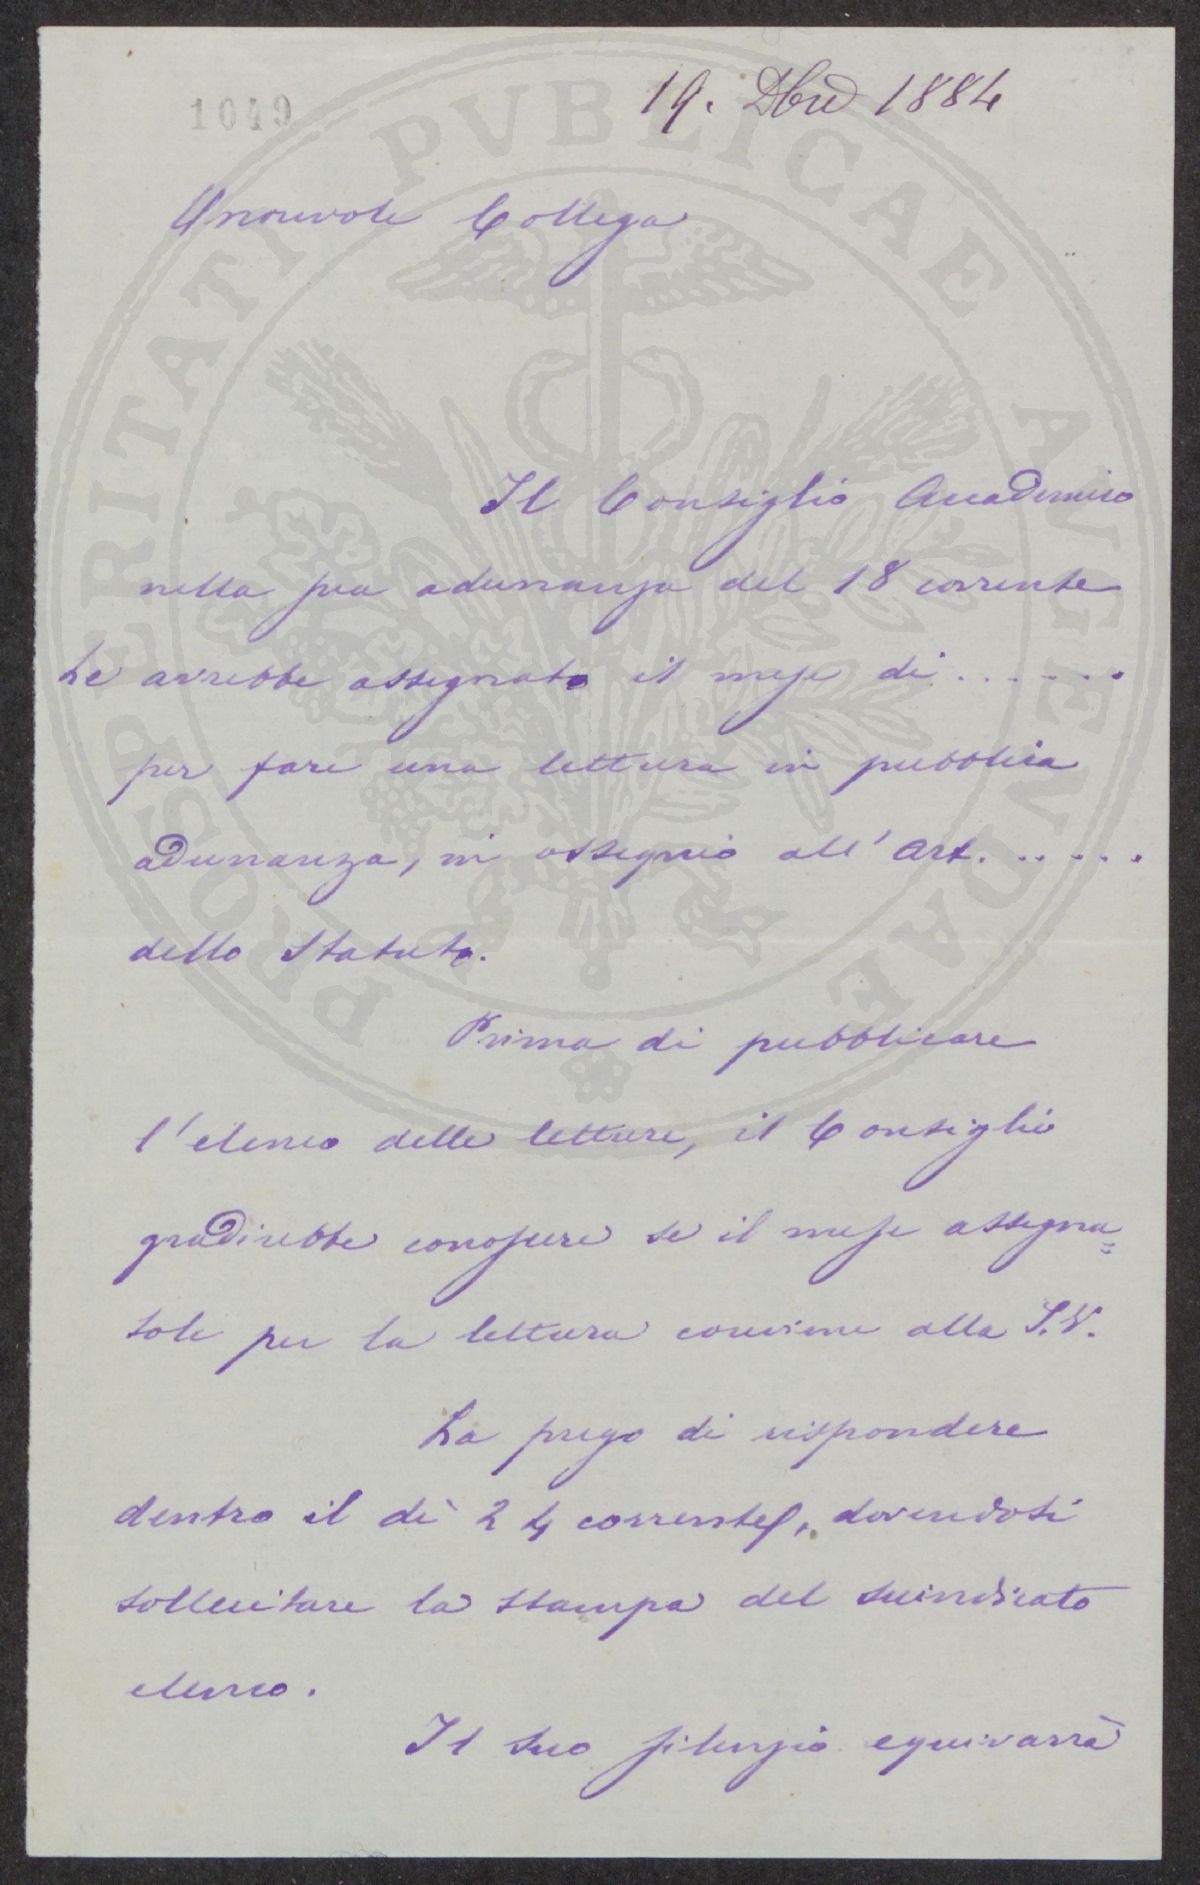 1049
19. Dbre 1884
Onorevole Collega
Il Consiglio Accademico
nella sua adunanza del 18 corrente
Le avrebbe assegnato il mese di . . . . . .
per fare una lettura in pubblica
adunanza, in ossequio all'Art. . . . . .
dello Statuto.
Prima di pubblicare
l'elenco delle letture, il Consiglio
gradirebbe conoscere se il mese assegna=
tole per la lettura conviene alla S.V.
La prego di rispondere
dentro il dì 24 corrente, dovendosi
sollecitare la stampa del suindicato
elenco.
Il suo silenzio equivarrà
PROSPERITATI PVBLICAE AVGENDAE